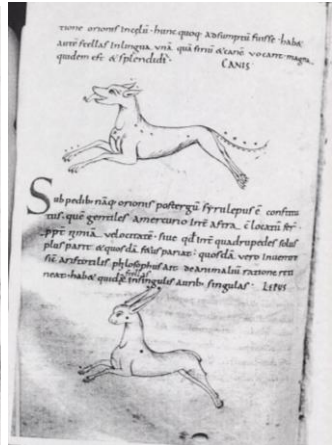 tione orionis incelū · hunc quoq; adsumptū fuisse · habæ
autē stellas In lingua unā quā siriū & canē vocant magna
quidem est & splendidi ·
CANIS ·
Sub pedib; nāq; orionis post ergū syrulepus ē
tus · quē gentiles amercurio Inter astra ē locatū
velocitatē · siue qd Inter quadrupedes solus
plus parit & quosdā pariat · quosdā vero Inuentre
Aristotiles phylosophus ait de animaliū ratione reti
neat · habæ quidē singulis aurib; singulas · LEPUS ·
stellas